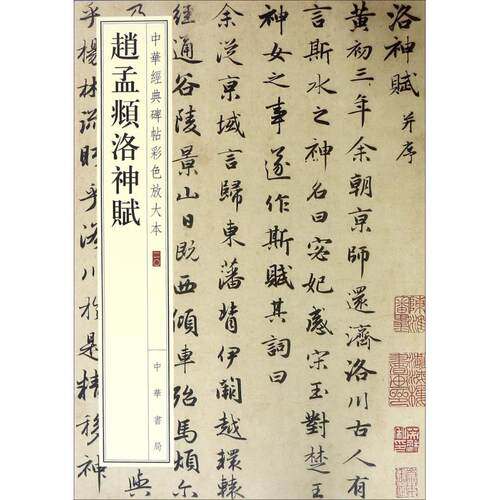 洛神賦 并序
黄初三年余朝京師還濟洛川古人有
言斯水之神名曰宓妃感宋玉對楚王
神女之事遂作斯賦其詞曰
余從京域言歸東藩背伊闕越轘轅
經通谷陵景山日既西傾車殆馬煩尔
與
乎楊林流眄乎洛川於是精移神
中華經典碑帖彩色放大本 二〇
趙孟頫洛神賦
中華書局